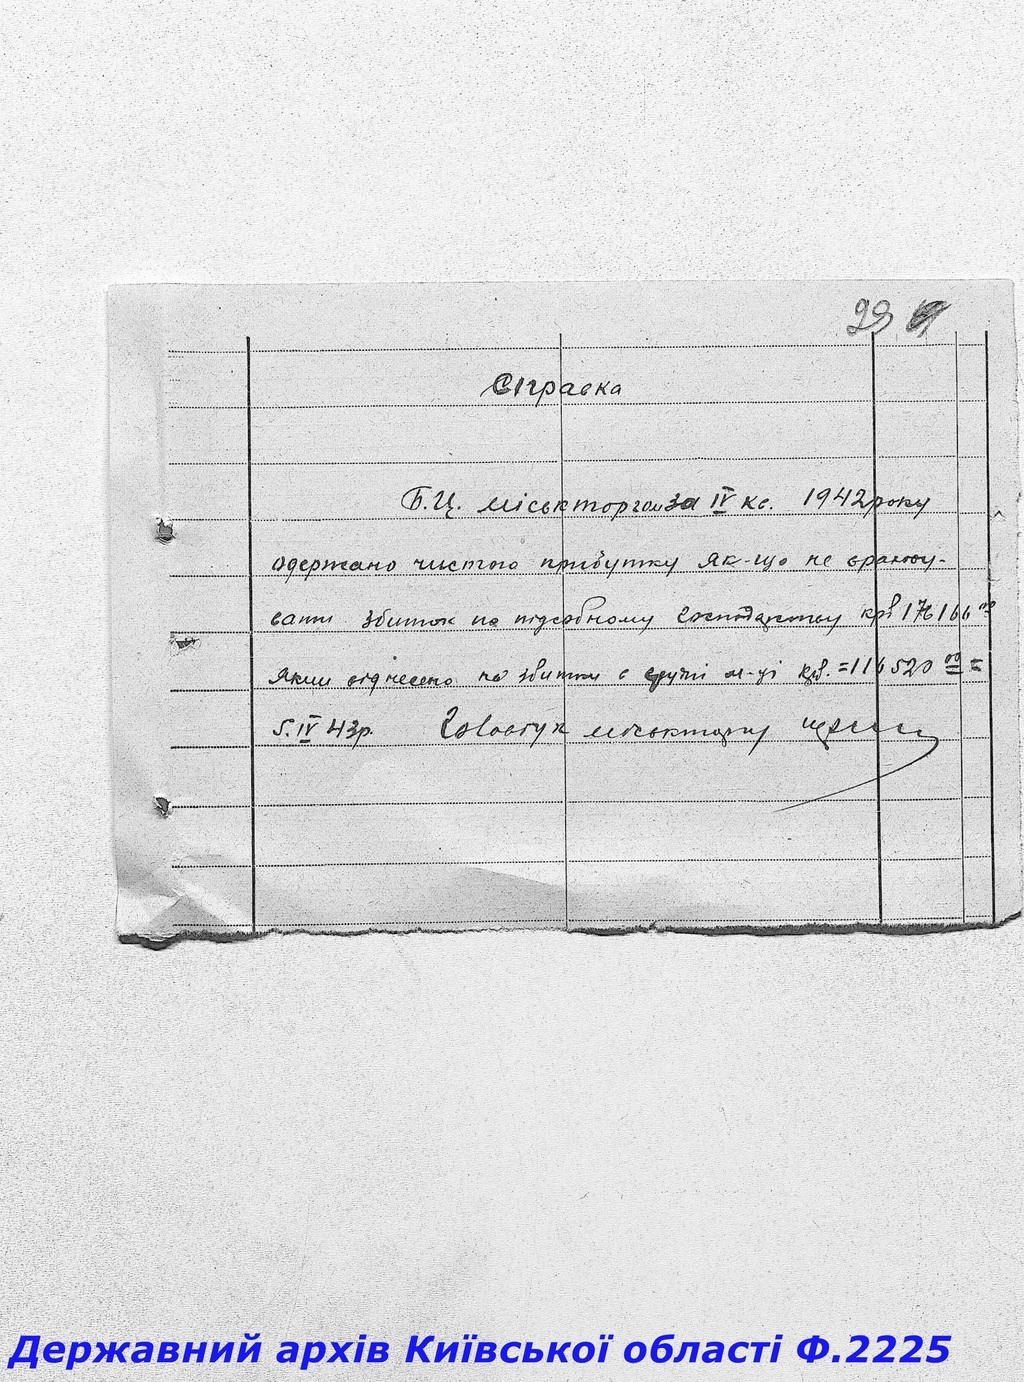 99
Справка
Б.Ц. міськторгом за IV кв. 1942 року
одержано чистого прибутку як-що не враховувати
збиток по підсобному господарству крб 176166 00
Який віднесено на збитки в групі крб. =116520 00=
5.IV 43р. міськторгу
Державний архів Київської області Ф.2225